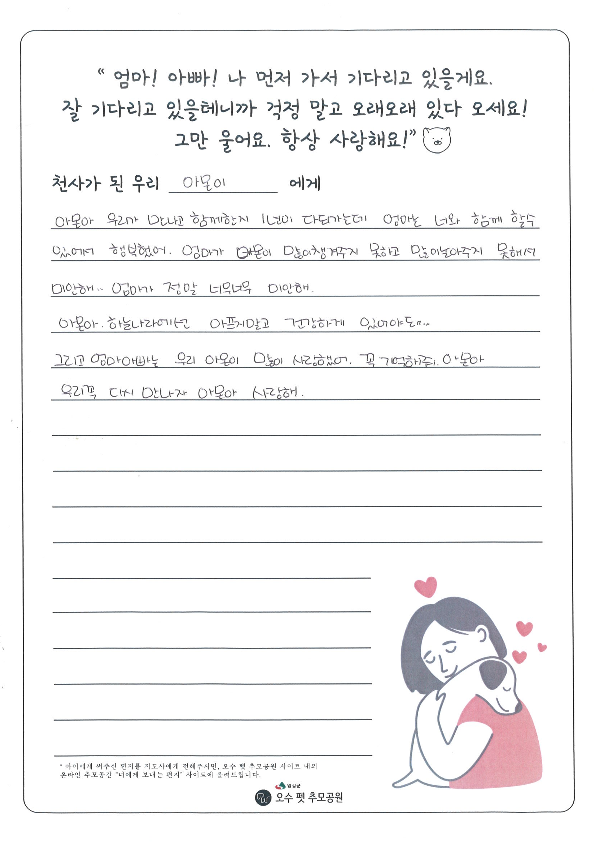 “ 엄마! 아빠! 나 먼저 가서 기다리고 있을게요.
잘 기다리고 있을테니까 걱정 말고 오래오래 있다 오세요!
그만 울어요. 항상 사랑해요!”
천사가 된 우리 아몽이 에게
아몽아 우리가 만나고 함께한지 1년이 다되가는데 엄마는 너와 함께 할수
있어서 행복했어. 엄마가 많이챙겨주지 못하고 많이놀아주지 못해서
미안해.. 엄마가 정말 너무너무 미안해.
아몽아. 하늘나라에선 아프지말고 건강하게 있어야도...
그리고 엄마아빠는 우리 아몽이 많이 사랑했어. 꼭 기억해줘. 아몽아
우리꼭 다시 만나자 아몽아 사랑해.
* 아이에게 써주신 편지를 지도사에게 전해주시면, 오수 펫 추모공원 사이트 내의
온라인 추모공간 "너에게 보내는 편지" 사이트에 올려드립니다.
임실군
오수 펫 추모공원